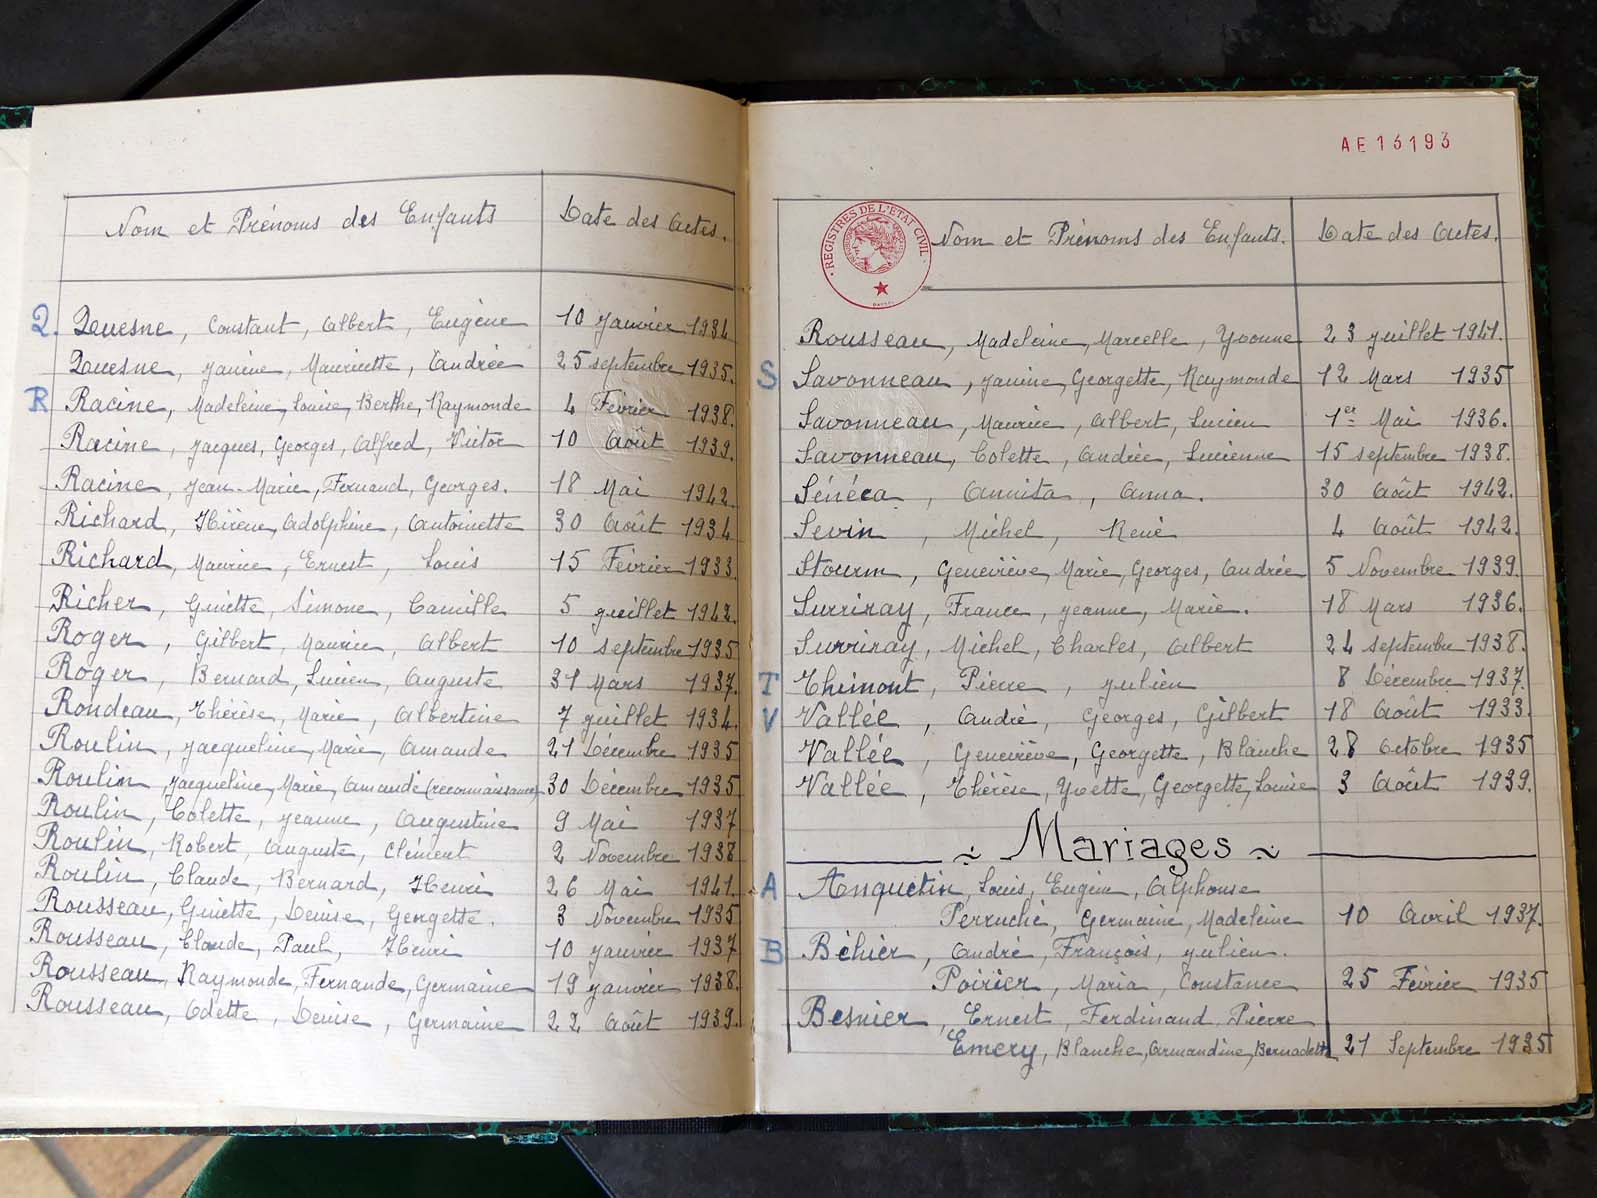 Nom et Prénoms des Enfants Date des Actes.
Q. Quesne, Constant, Albert, Eugène 10 Janvier 1934
Quesne, Janine, Mauricette, Andrée 25 septembre 1935.
R Racine, Madeleine, Louise, Berthe, Raymonde 4 Février 1938.
Racine, Jacques, Georges, Alfred, Victor 10 Août 1939.
Racine, Jean-Marie, Fernand, Georges. 18 Mai 1942.
Richard, Hirène, Adolphine, Antoinette 30 Août 1934
Richard, Maurice, Ernest, Louis 15 Février 1933.
Richer, Ginette, Simone, Camille 5 Juillet 1942.
Roger, Gilbert, Maurice, Albert 10 septembre 1935
Roger, Bernard, Lucien, Auguste 31 Mars 1937.
Rondeau, Thérèse, Marie, Albertine 7 Juillet 1934.
Roulin, Jacqueline, Marie, Amande 21 Décembre 1935
Roulin, Jacqueline, Marie, Amande (reconnaissance) 30 Décembre 1935
Roulin, Colette, Jeanne, Augustine 9 Mai 1937
Roulin, Robert, Auguste, Clément 2 Novembre 1938
Roulin, Claude, Bernard, Henri 26 Mai 1941.
Rousseau, Ginette, Denise, Georgette. 3 Novembre 1935
Rousseau, Claude, Paul, Henri 10 Janvier 1937
Rousseau, Raymonde, Fernande, Germaine 19 Janvier 1938.
Rousseau, Odette, Denise, Germaine 22 Août 1939.
AE 13193
REGISTRES DE L'ETAT CIVIL
Nom et Prénoms des Enfants. Date des Actes.
Rousseau, Madeleine, Marcelle, Yvonne 23 Juillet 1941.
S Savonneau, Janine, Georgette, Raymonde 12 Mars 1935
Savonneau, Maurice, Albert, Lucien 1er Mai 1936.
Savonneau, Colette, Andrée, Lucienne 15 septembre 1938.
Sénéca, Annita, Anna. 30 Août 1942.
Sevin, Michel, René 4 Août 1942.
Stourm, Geneviève, Marie, Georges, Andrée 5 Novembre 1939.
Surriray, France, Jeanne, Marie. 18 Mars 1936.
Surriray, Michel, Charles, Albert 24 septembre 1938.
T Thimont, Pierre, Julien 8 Décembre 1937.
V Vallée, André, Georges, Gilbert 18 Août 1933.
Vallée, Geneviève, Georgette, Blanche 28 Octobre 1935
Vallée, Thérèse, Yvette, Georgette, Louise 3 Août 1939.
~ Mariages ~
A Anquetin, Louis, Eugène, Alphonse
Perruché, Germaine, Madeleine 10 Avril 1937.
B Béhier, André, François, Julien.
Poirier, Maria, Constance 25 Février 1935
Besnier, Ernest, Ferdinand, Pierre
Emery, Blanche, Armandine, Bernadette 21 Septembre 1935